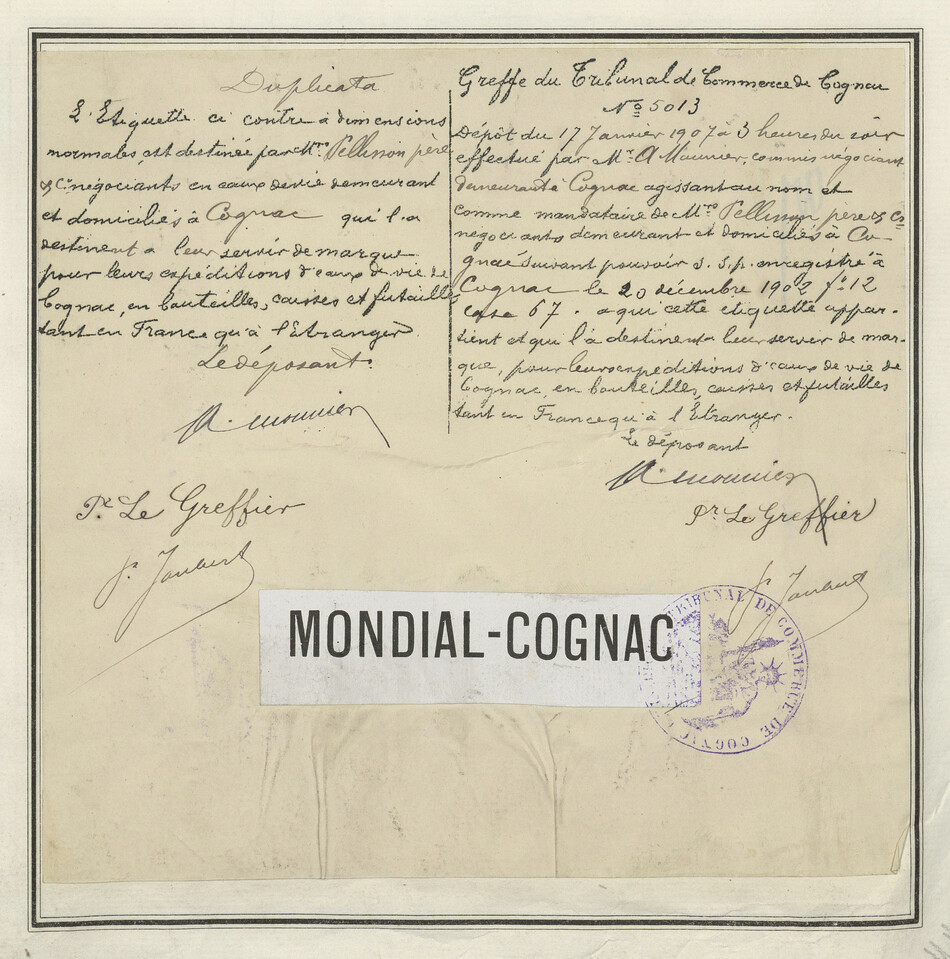 Duplicata
L'Etiquette ci contre à dimensions
normales est destinée par Mrs Pellisson père
& Cie négociants en eaux de vie demeurant
et domiciliés à Cognac qui l'a
destinent a leur servir de marque
pour leurs expéditions d'eaux de vie de
Cognac, en bouteilles, caisses et futailles
tant en France qu'à l'Etranger
Le déposant.
A. Mounier
Pr Le Greffier
Greffe du Tribunal de Commerce de Cognac
No 5013
Dépôt du 17 Janvier 1907 à 3 heures du soir
effectué par Mr A Mounier, commis négociant
demeurant à Cognac agissant au nom et
comme mandataire de Mrs Pellisson père & Cie
négociants demeurant et domiciliés à Co-
gnac suivant pouvoir s.s.p. enregistré à
Cognac le 20 décembre 1902 fo 12
case 67. a qui cette étiquette appar-
tient et qui l'a destinent a leur server de mar-
que, pour leurs expéditions d'eaux de vie de
Cognac, en bouteilles, caisses et futailles
tant en France qu'à l'Etranger.
Le déposant
A. Mounier
Pr Le Greffier
MONDIAL-COGNAC
TRIBUNAL DE COMMERCE DE COGNAC